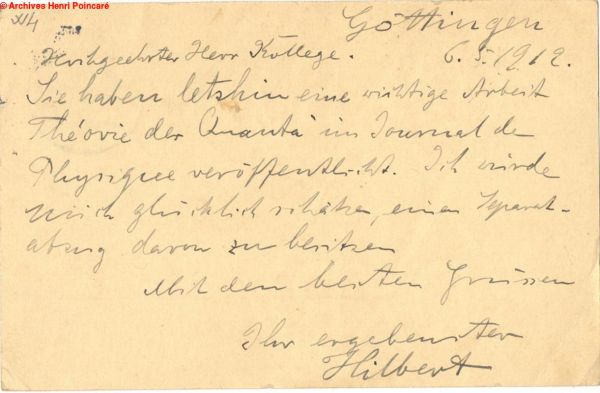 © Archives Henri Poincaré
Göttingen
Hochgeehrter Herr Kollege. 6. 5. 1912.
Sie haben letzhin eine wichtige Arbeit
Théorie der Quanta im Journal de
Physique veröffentlicht. Ich würde
mich glücklich schätzen, einen Separat-
abzug davon zu besitzen
Mit den besten Grüssen
Ihr ergebenster
Hilbert